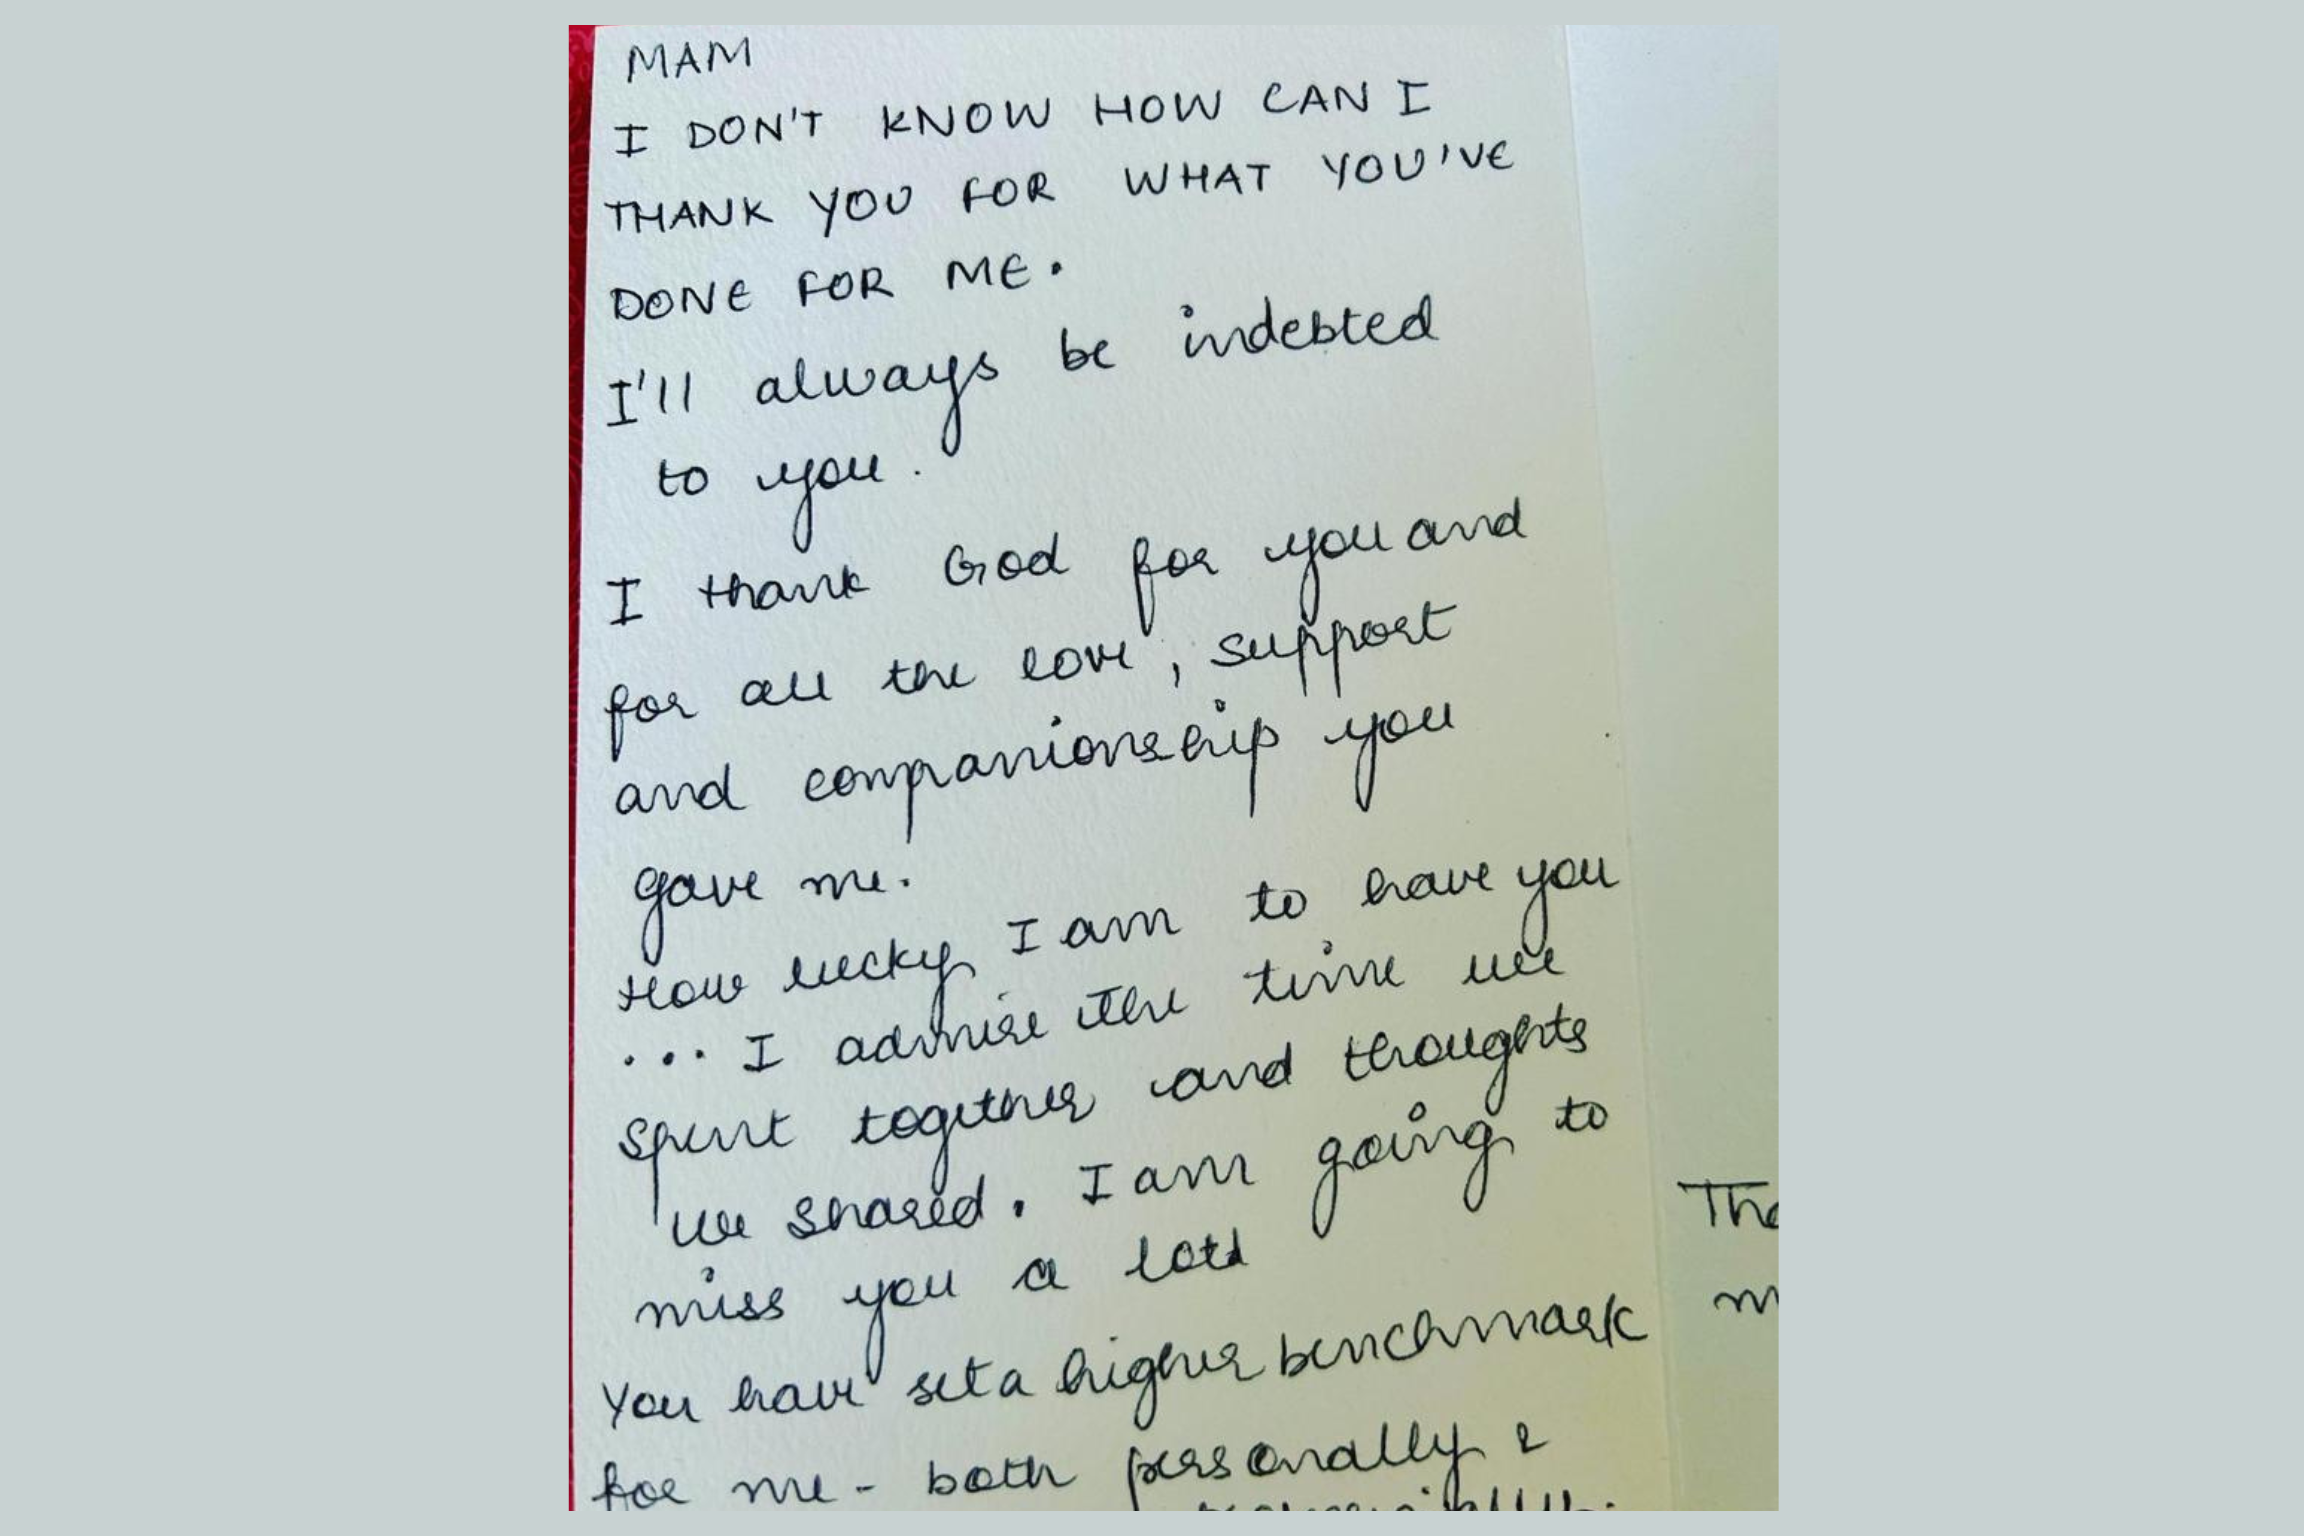 MAM
I DON'T KNOW HOW CAN I
THANK YOU FOR WHAT YOU'VE
DONE FOR ME.
I'll always be indebted
to you.
I thank God for you and
for all the love, support
and companionship you
gave me.
How lucky I am to have you
... I admire the time we
spent together and thoughts
we shared. I am going to
miss you a lot
You have set a higher benchmark
for me - both personally &